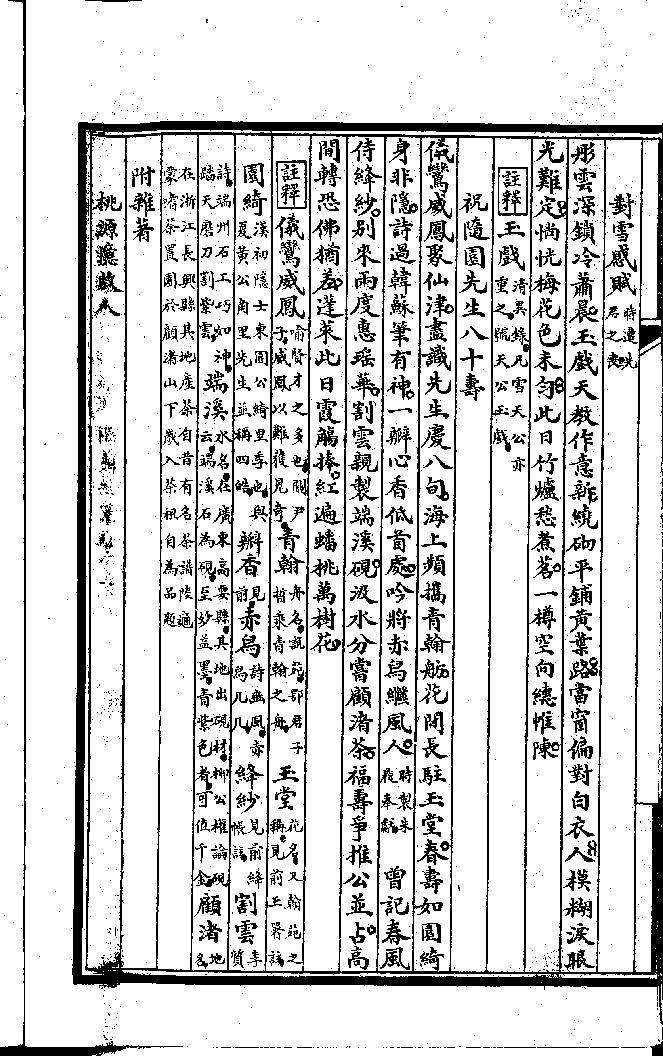 對雪感賦 時遭先君之喪
彤雲深鎖冷蕭晨玉戲天教作意新繞砌平鋪黃葉路當窗偏對白衣人模糊淚眼
光難定惝恍梅花色未勻此日竹爐愁煮茗一樽空向繐帷陳
註釋 玉戲 清異錄凡雪天公亦重之號天公玉戲
祝隨園先生八十壽
儀鸞威鳳聚仙津盡識先生慶八旬海上頻攜青翰舫花間長駐玉堂春壽如園綺
身非隱詩過韓蘇筆有神一瓣心香低首處吟將赤舄繼風人 時製朱履奉獻 曾記春風
侍絳紗別來兩度惠瑶華割雲親製端溪硯汲水分嘗顧渚茶福壽爭推公並占高
間轉恐佛猶差蓬萊此日霞觴捧紅遍蟠桃萬樹花
註釋 儀鸞威鳳 喻賢才之多也關尹子威鳳以難獲見奇 青翰 舟名說苑鄂君子晳乘青翰之舟 玉堂 花名又翰苑之稱見前玉署註
園綺 漢初隱士東園公綺里季也與夏黃公甪里先生並稱四皓 瓣香 見前 赤舄 詩豳風赤舄几几 絳紗 見前絳帳註 割雲 李賀
詩端州石工巧如神踏天磨刀割紫雲 端溪 水名在廣東高要縣其地出硯材柳公權論硯云端溪石為硯至妙益墨青紫色者可值千金 顧渚 地名
在浙江長興縣其地產茶自昔有名茶譜陸龜蒙嗜茶置園於顧渚山下歲入茶租自為品題
附雜著
桃源